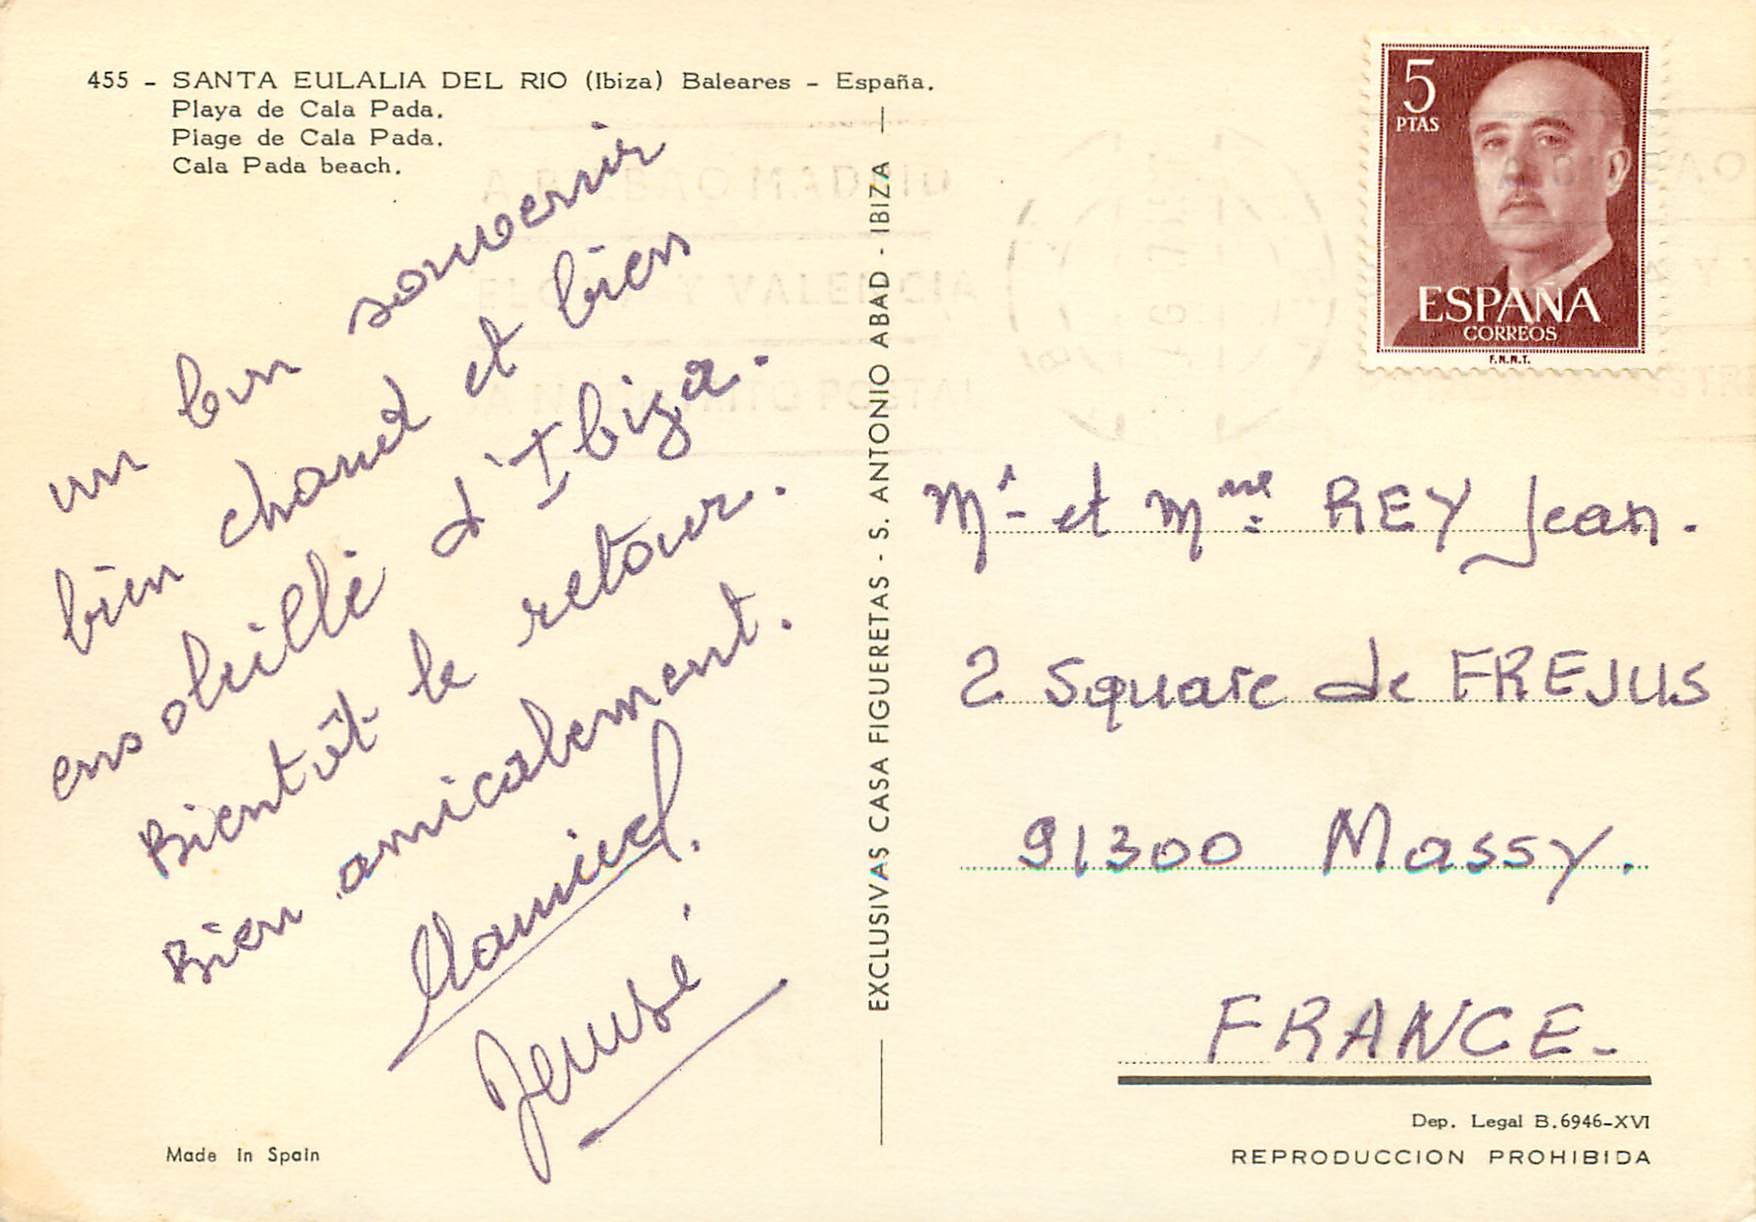 455 - SANTA EULALIA DEL RIO (Ibiza) Baleares - España.
Playa de Cala Pada.
Plage de Cala Pada.
Cala Pada beach.
un bon souvenir
bien chaud et bien
ensoleillé d'Ibiza.
Bientôt le retour.
Bien amicalement.
Made in Spain
EXCLUSIVAS CASA FIGUERETAS - S. ANTONIO ABAD - IBIZA
5
PTAS
ESPAÑA
CORREOS
F.N.M.T.
A BILBAO MADRID
Y VALENCIA
Mr et Mme REY Jean.
2 Square de FREJUS
91300 Massy.
FRANCE-
Dep. Legal B.6946-XVI
REPRODUCCION PROHIBIDA